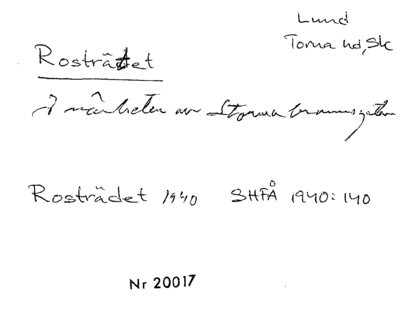 Lund
Torna hd, Sk
Rosträdet
I närheten av Stora
Rosträdet 1940 SHFÅ 1940:140
Nr 20017